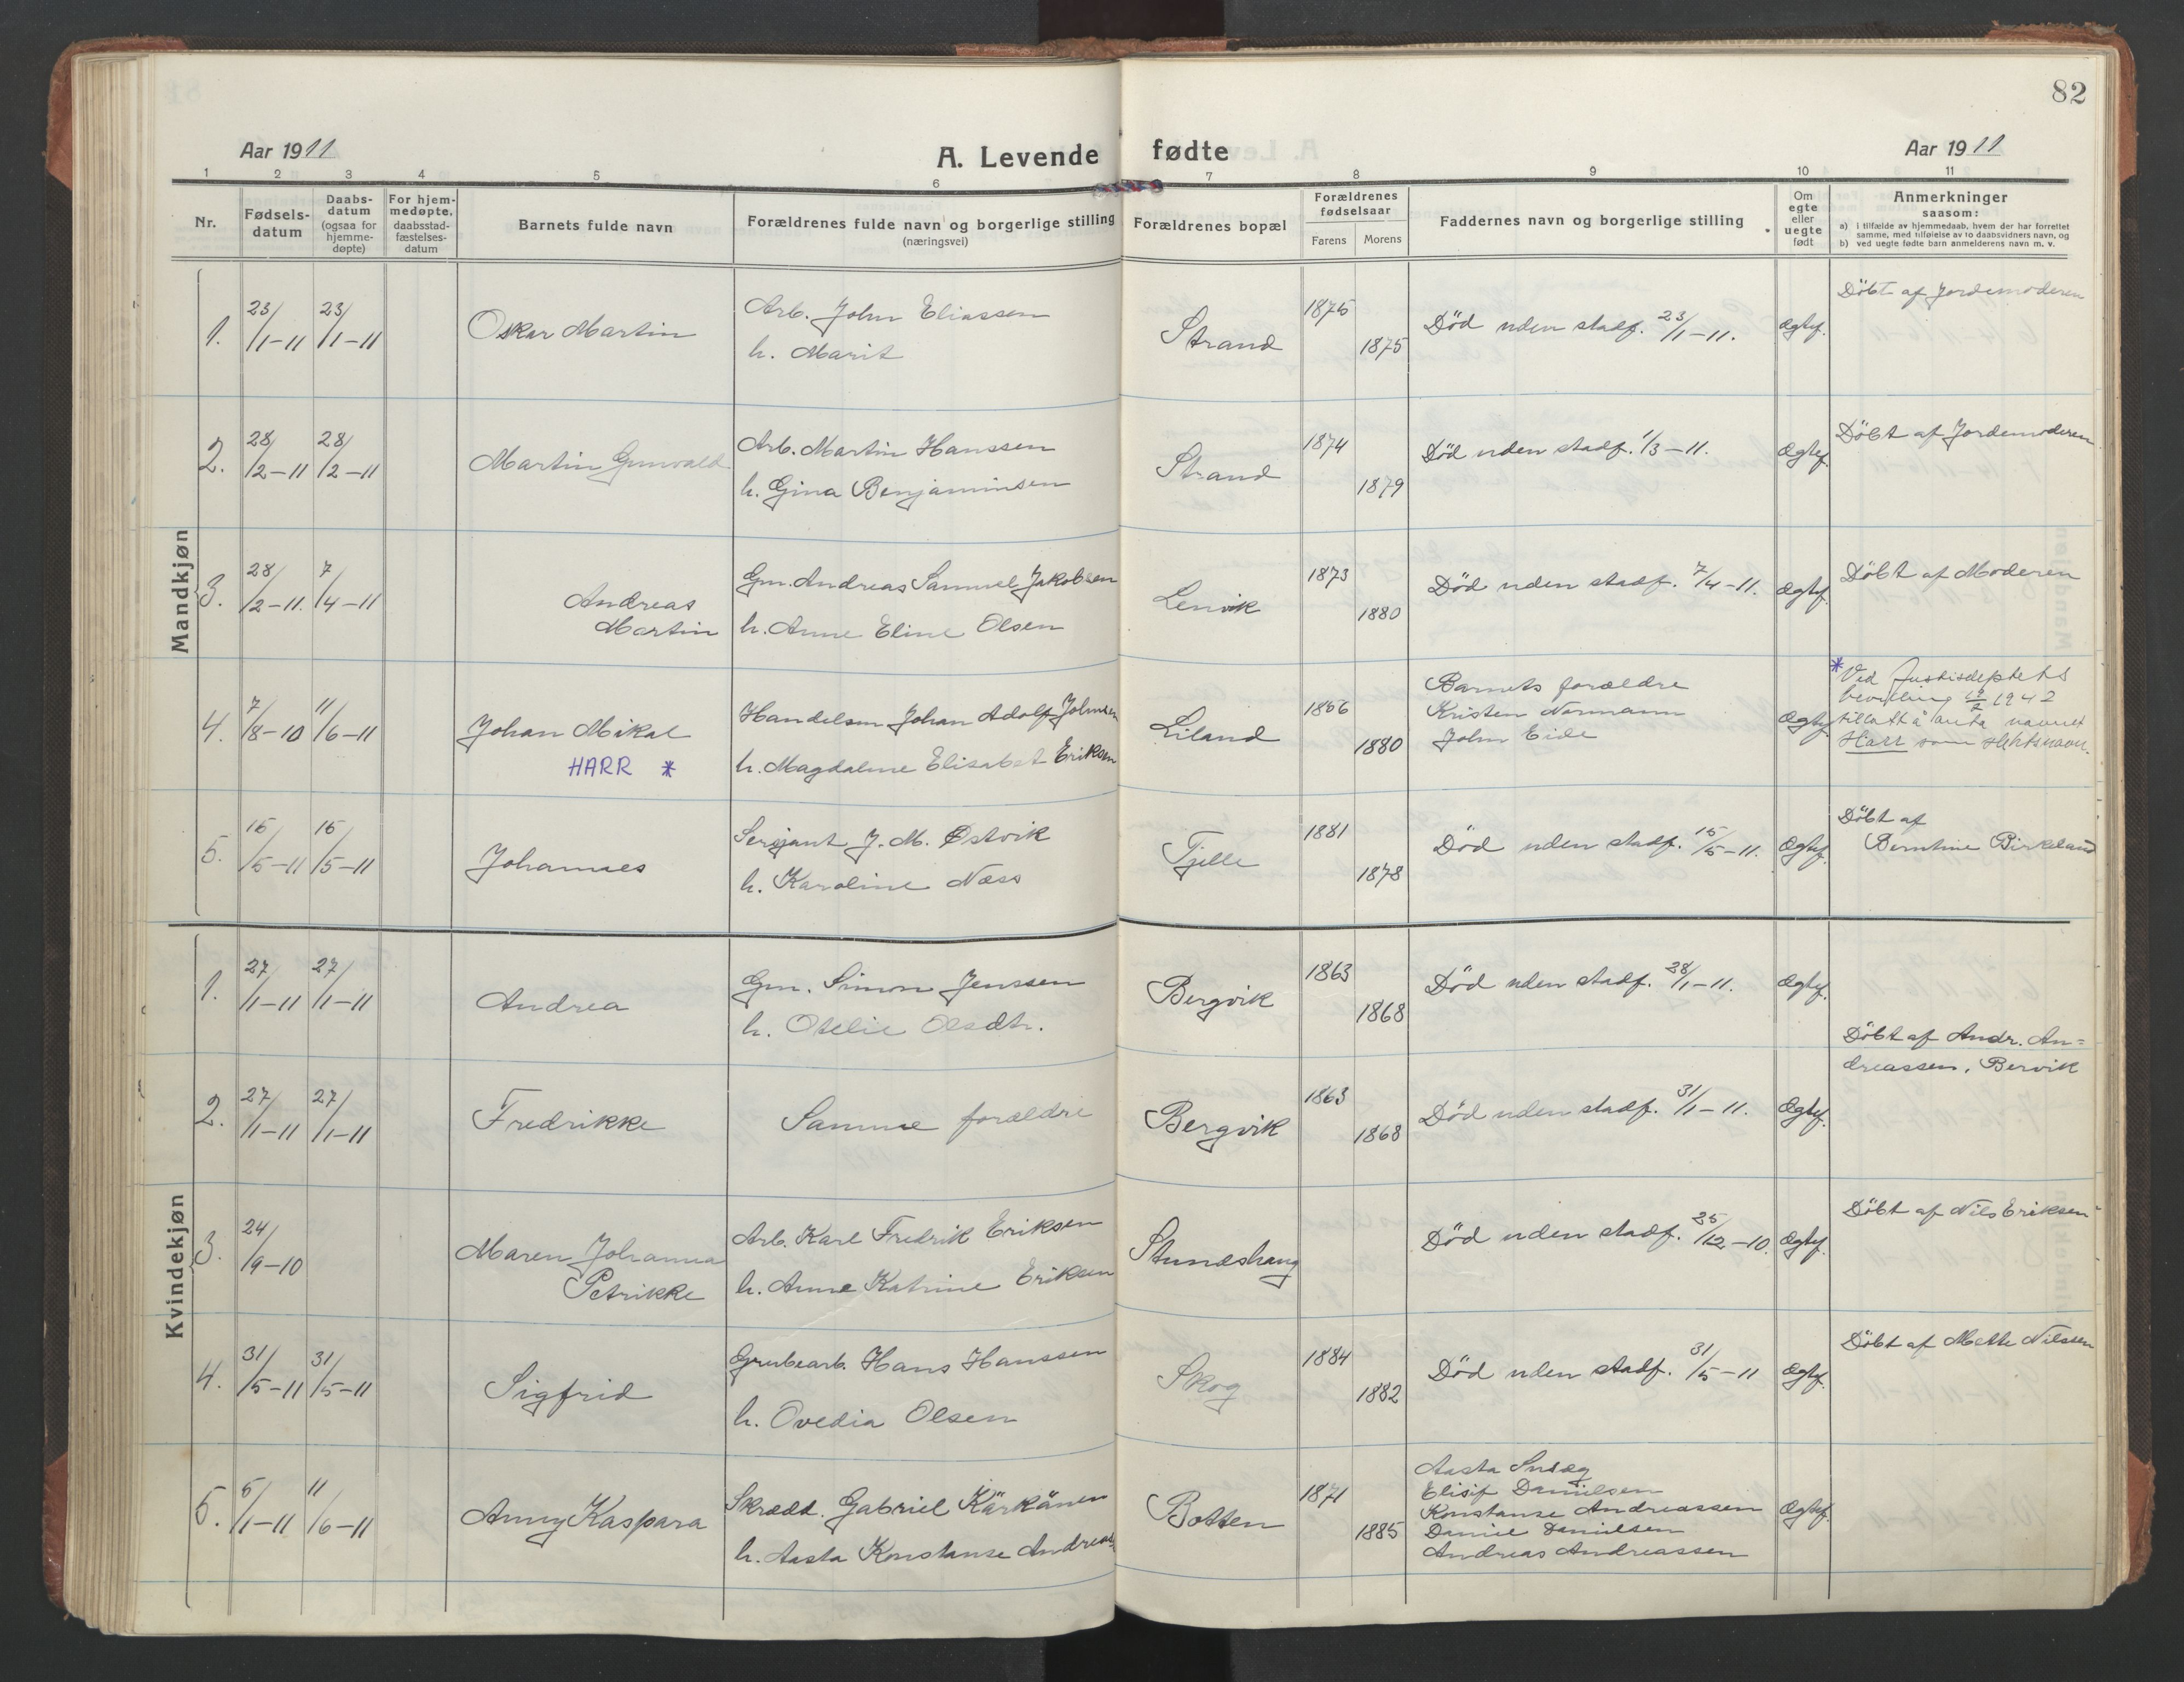 82
Aar 1911
A. Levende fødte
Aar 1911
1 2 3 4 5 6 7 8 9 10 11
Nr.
Fødsels-
datum
Daabs-
datum
(ogsaa for
hjemme-
døpte)
For hjem-
medøpte,
daabsstad-
fæstelses-
datum
Barnets fulde navn
Forældrenes fulde navn og borgerlige stilling
(næringsvei)
Forældrenes bopæl
Forældrenes
fødselsaar
Farens Morens
Faddernes navn og borgerlige stilling
Om
egte
eller
uegte
født
Anmerkninger
saasom:
a) i tilfælde av hjemmedaab, hvem der har forrettet
samme, med tilføielse av to daabsvidners navn, og
b) ved uegte fødte barn anmelderens navn m. v.
Mandkjøn
1. 23/1-11 23/1-11
Oskar Martin
Arb. John Eliassen
h. Marit
Strand
1875
1875
Död uden stadf. 23/1-11.
Ægtef.
Döbt af Jordemoderen
2. 28/2-11 28/2-11
Martin Gunvald
Arb. Martin Hanssen
h. Gina Benjaminsen
Strand
1874
1879
Död uden stadf. 1/3-11.
Ægtef.
Döbt af Jordemoderen
3. 28/2-11. 7/4-11
Andreas
Martin
Gm. Andreas Samuel Jakobsen
h. Anne Eline Olsen
Lenvik
1873
1880
Död uden stadf. 7/4-11.
Ægtef.
Döbt af Moderen
4. 7/8-10 11/6-11
Johan Mikal
HARR *
Handelsm Johan Adolf Johnsen
h. Magdalene Elisabet Eriksen
Liland
1866
1880
Barnets forældre
Kristen Normann
John Eide
Ægtef.
* Ved Justisdeptets
bevilling 1942
tillatt å anta navnet
Harr som slektsnavn.
5. 15/5-11 15/5-11
Johannes
Sersjant J. M. Østvik
h. Karoline Næss
Tjelle
1881
1878
Död uden stadf. 15/5-11.
Ægtef.
Döbt af
Berntine Birkeland
Kvindekjøn
1. 27/1-11 27/1-11
Andrea
Gm. Simon Jenssen
h. Otelie Olsdtr.
Bergvik
1863
1868
Död uden stadf. 28/1-11.
Ægtef.
Döbt af Andr. An=
dreassen, Bervik
2. 27/1-11 27/1-11
Fredrikke
Samme forældre
Bergvik
1863
1868
Död uden stadf. 31/1-11.
Ægtef.
3. 24/9-10
Maren Johanna
Petrikke
Arb. Karl Fredrik Eriksen
h. Anne Katrine Eriksen
Stundshaug
Död uden stadf. 25/12-10.
Ægtef.
Döbt af Nils Eriksen
4. 31/5-11 31/5-11
Sigfrid
Grubearb. Hans Hanssen
h. Ovedia Olsen
Skog
1884
1882
Död uden stadf. 31/5-11
Ægtef.
Döbt af Mette Nilssen
5. 5/1-11 11/6-11
Anny Kaspara
Skrædd. Gabriel Kärkänen
h. Aasta Konstanse Andreas
Botten
1871
1885
Aasta
Elisif Danielsen
Konstanse Andreassen
Daniel Danielsen
Andreas Andreassen
Ægtef.